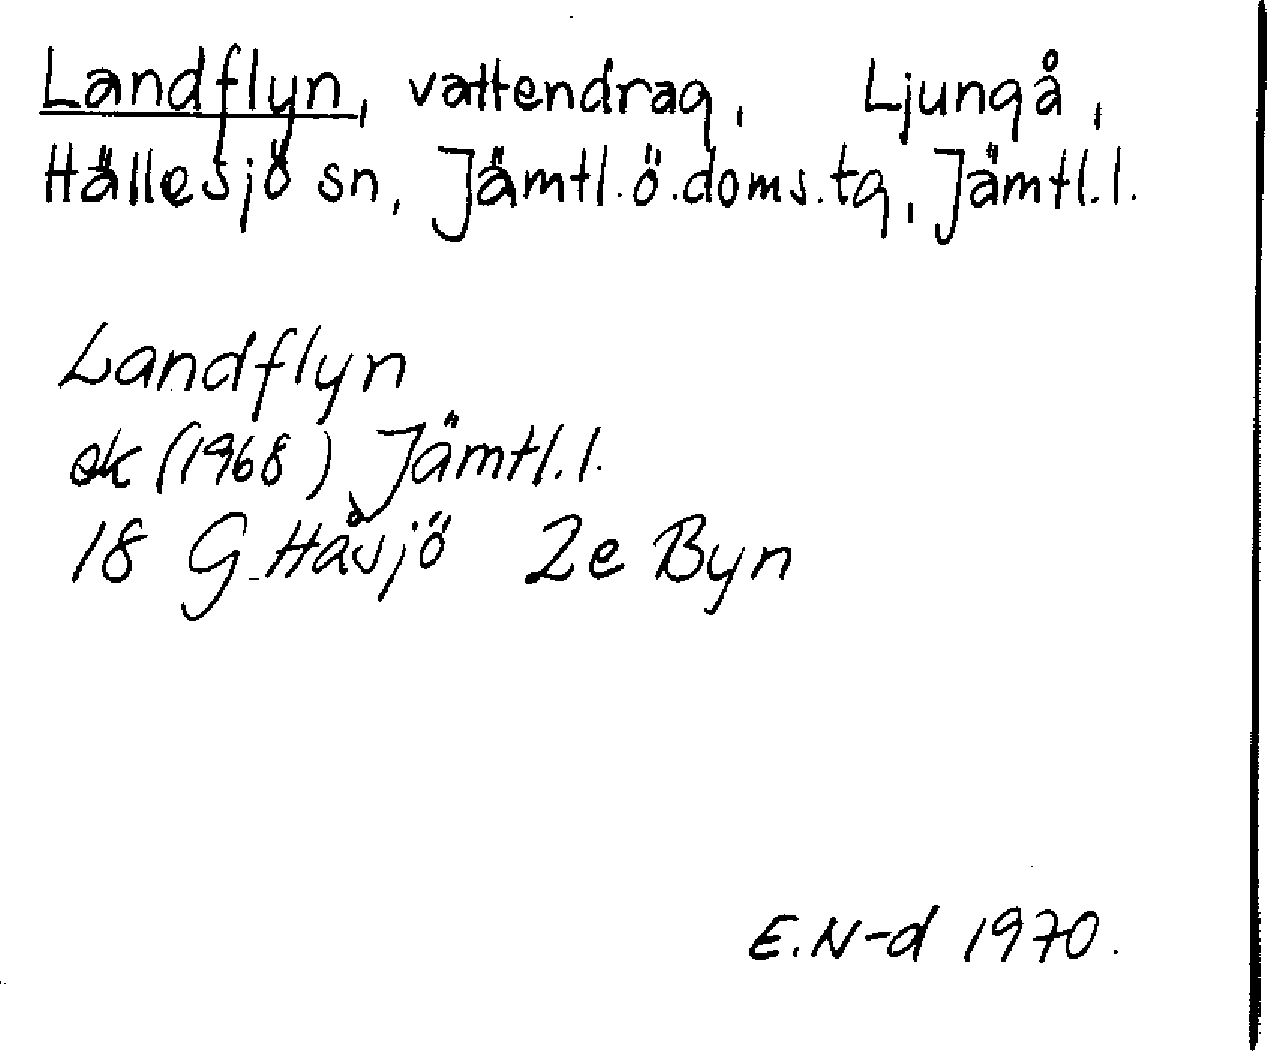 Landflyn, vattendrag, Ljungå,
Hällesjö sn, Jämtl.ö.doms.tg, Jämtl.l.
Landflyn
ek (1968) Jämtl.l.
18 G Håsjö 2e Byn
E.N-d 1970.